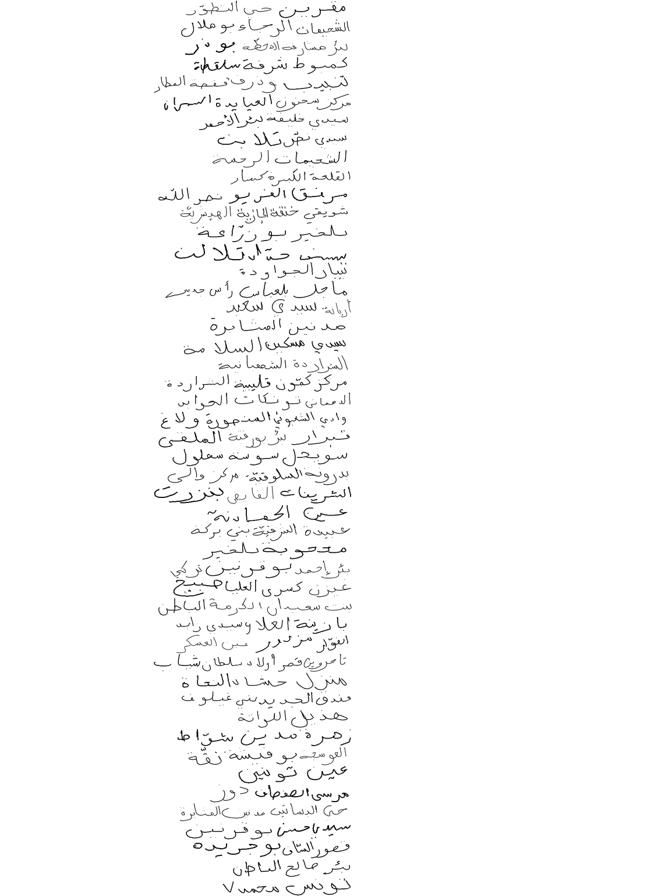 مقرين حي التطوّر
الشعيبات الرجاء بوهلال
بئر مشارقة المحطة بو ذر
كمبوط شرفة سلقطة
لتييب وذرف قفصة العطار
مركز سحنون العيايدة السمران
سيدي خليفة بئر الأحمر
سيدي نصر تلابت
الشعيبات الرحمة
القلعة الكبيرة كسار
مرناق الفريو نصر الله
شويقي خنقة الجازية الهيشرية
بلخير بوزرّاعة
تلالت
نيبار الجواودة
ماجل بلعباس رأس جدير
أريانة سيدي سعيد
مدنين المشابرة
سيدي مسكين السلامة
العراردة الشعبانية
مركز كمّون قليبية الشراردة
الدهماني تونكات الجوابر
وادي الشعبوني المنصورة ولاغ
تيرار بئر بورقبة الملقى
سويحل سوسة سهلول
بدرونة السلوقية مركز والي
الشرينات القابع بنزرت
عين الحمادنة
عبيدة الشرفية بني بركة
معجوبة بلخير
بئر أحمد بوفرنين تركي
غيزن كسرى العليا صبيح
بئر سعيدان الكرمة الباطن
بازينة العلا وسيدي رابد
الفوّار مزدور العسكر
تامزوين قصر أولاد سلطان شباب
منزل حشاد النعاة
فندق الجديد بني غيلوف
هذيل اللوانة
زهرة مدين شوّاط
العوسجة بوفيشة نقّة
عين تونين
مرسى القصبات دوز
حي البساتين مدنين العشابرة
سيدي حسن بوفرنين
قصور السّاف بوجريدة
بئر صالح الباطن
تونس محمد V